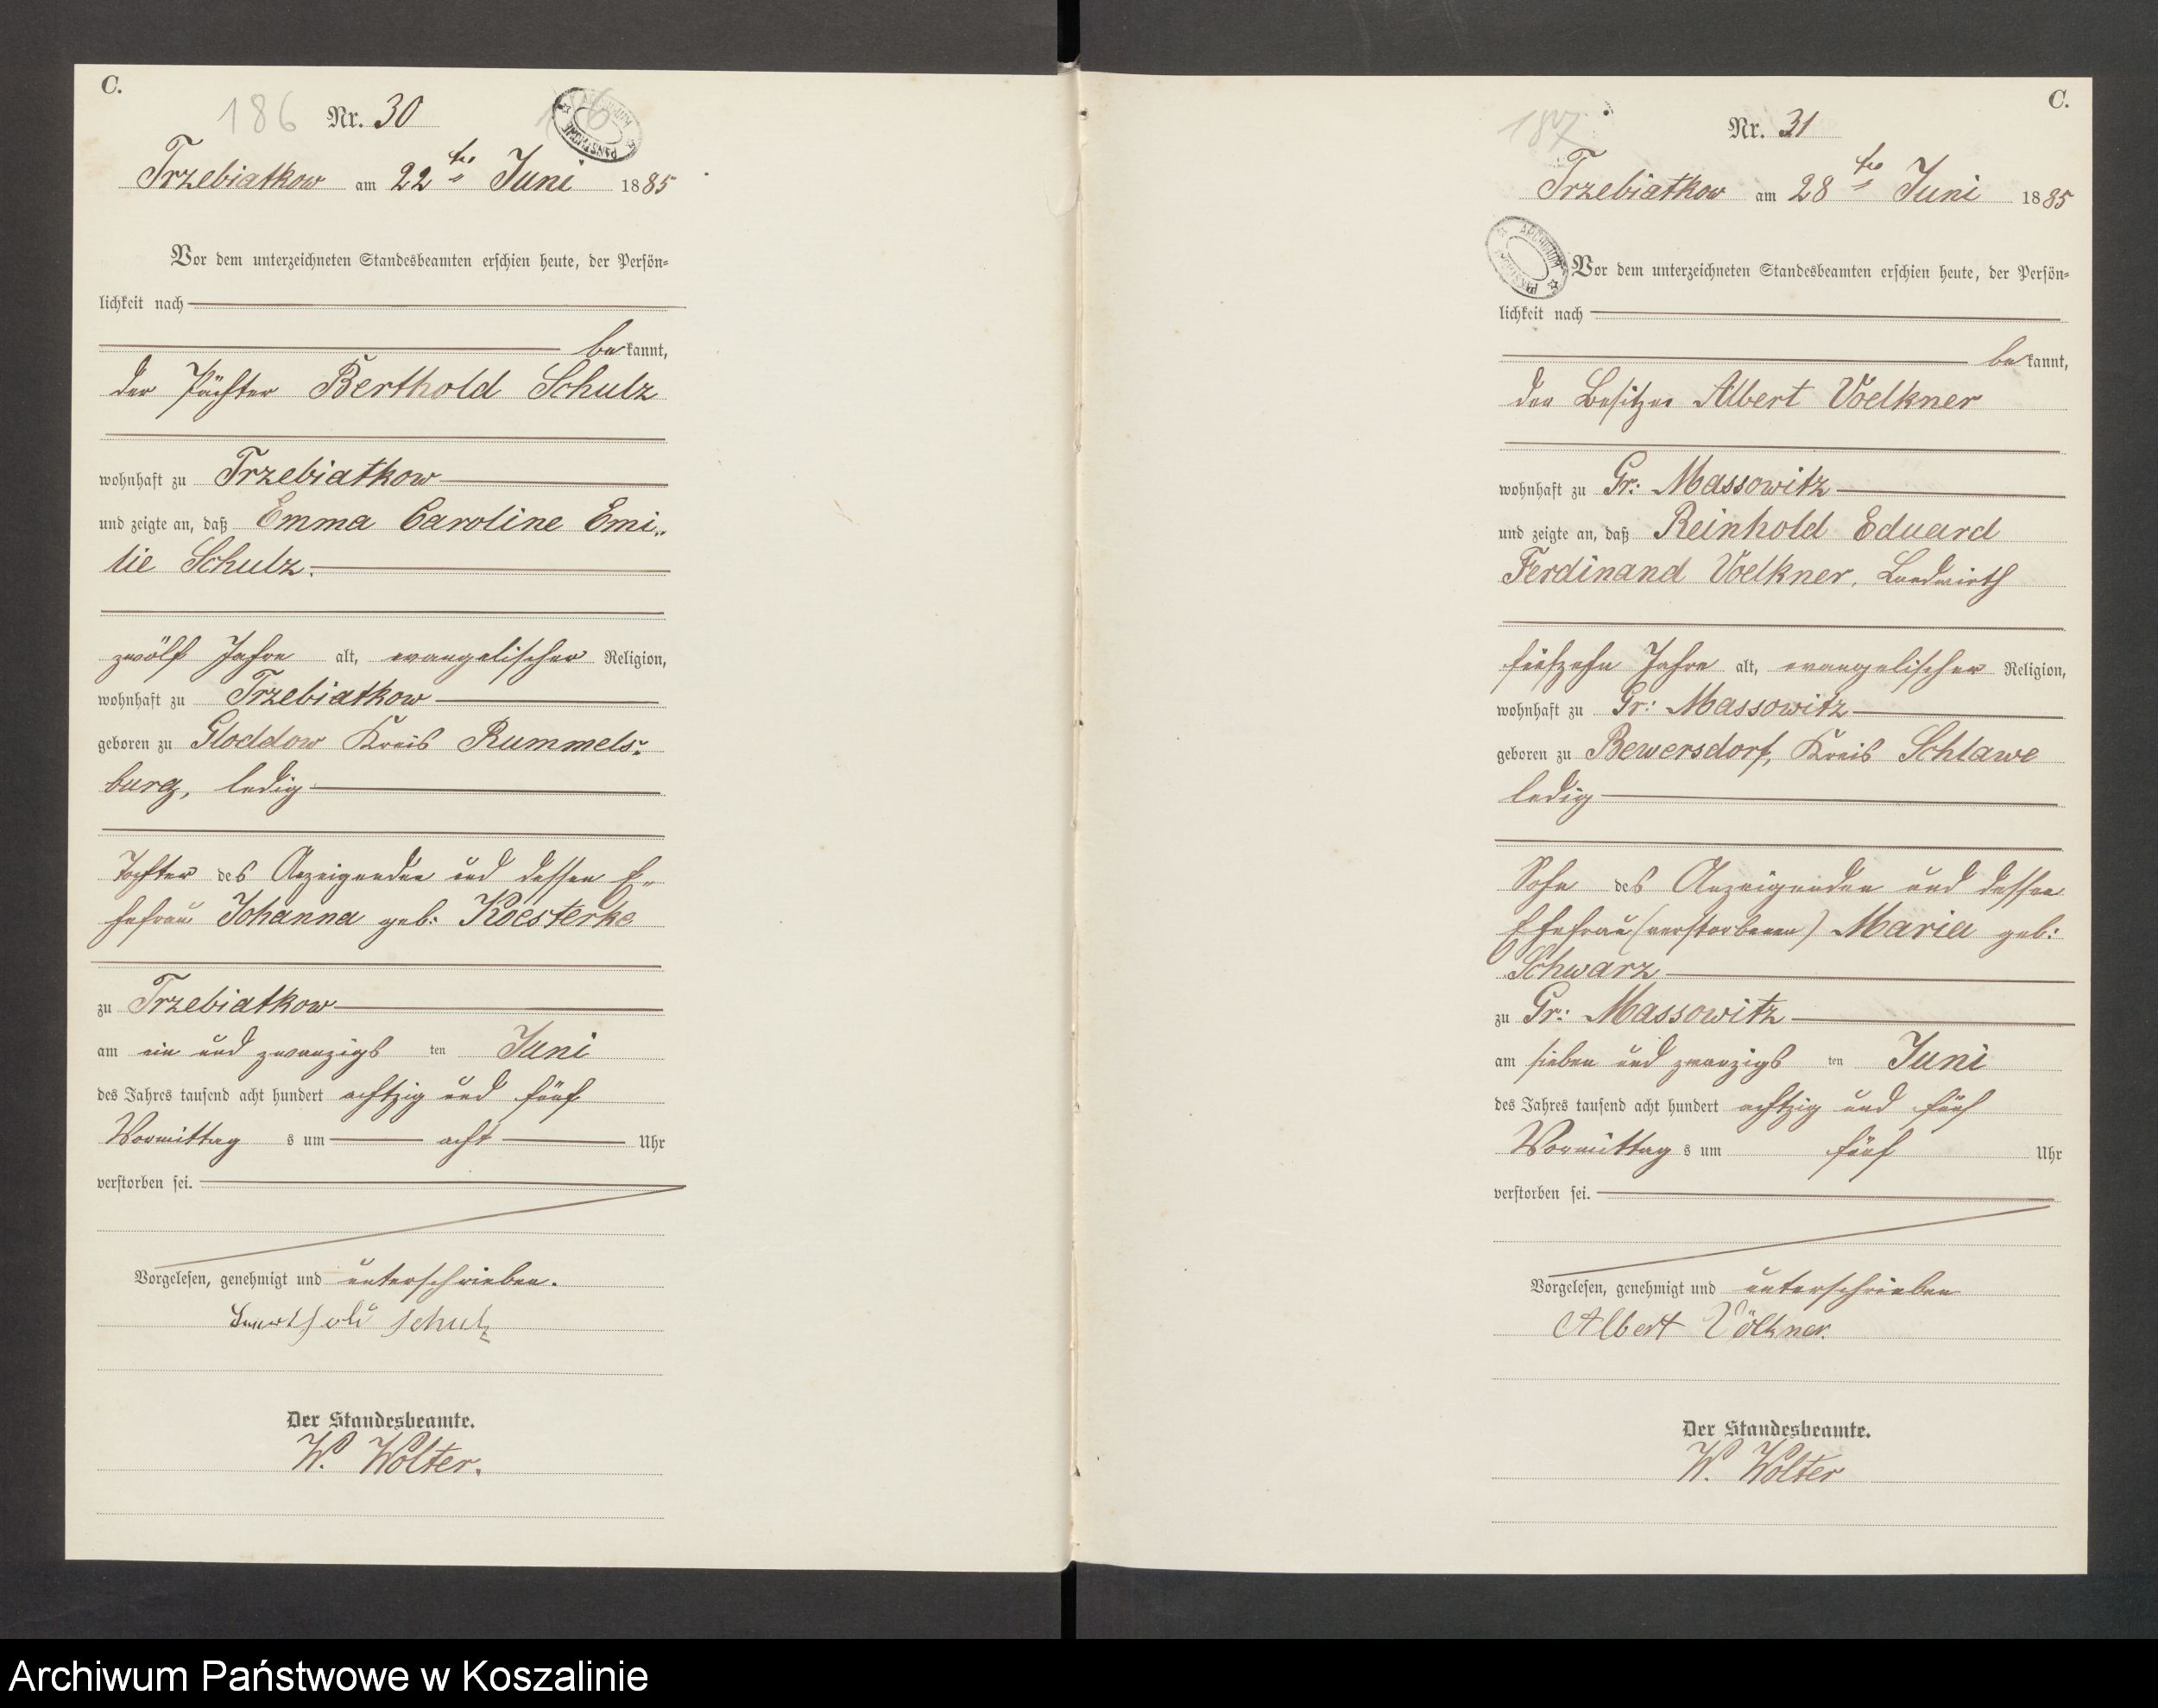 C.
186 Nr. 30
Trzebiatkow am 22ten Juni 1885
Vor dem unterzeichneten Standesbeamten erschien heute, der Persön=
lichkeit nach
bekannt,
der Pächter Berthold Schulz
wohnhaft zu Trzebiatkow
und zeigte an, daß Emma Caroline Emi=
lie Schulz.
zwölf Jahre alt, evangelischer Religion,
wohnhaft zu Trzebiatkow
geboren zu Gloddow Kreis Rummels=
burg, ledig
Tochter des Anzeigenden und dessen E=
hefrau Johanna geb: Koesterke
zu Trzebiatkow
am ein und zwanzigs ten Juni
des Jahres tausend acht hundert achtzig und fünf
Vormittag s um acht Uhr
verstorben sei.
Vorgelesen, genehmigt und unterschrieben.
Berthold Schulz
Der Standesbeamte.
W. Wolter.
C.
187 Nr. 31
Trzebiatkow am 28ten Juni 1885
ARCHIWUM PAŃSTWOWE
Vor dem unterzeichneten Standesbeamten erschien heute, der Persön=
lichkeit nach
bekannt,
der Besitzer Albert Voelkner
wohnhaft zu Gr: Massowitz
und zeigte an, daß Reinhold Eduard
Ferdinand Voelkner, Landwirth
fünfzehn Jahre alt, evangelischer Religion,
wohnhaft zu Gr: Massowitz
geboren zu Bewersdorf, Kreis Schlawe
ledig
Sohn des Anzeigenden und dessen
Ehefrau (verstorbenen) Maria geb:
Schwarz
zu Gr: Massowitz
am sieben und zwanzigs ten Juni
des Jahres tausend acht hundert achtzig und fünf
Vormittag s um fünf Uhr
verstorben sei.
Vorgelesen, genehmigt und unterschrieben
Albert Völkner.
Der Standesbeamte.
W. Wolter
Archiwum Państwowe w Koszalinie